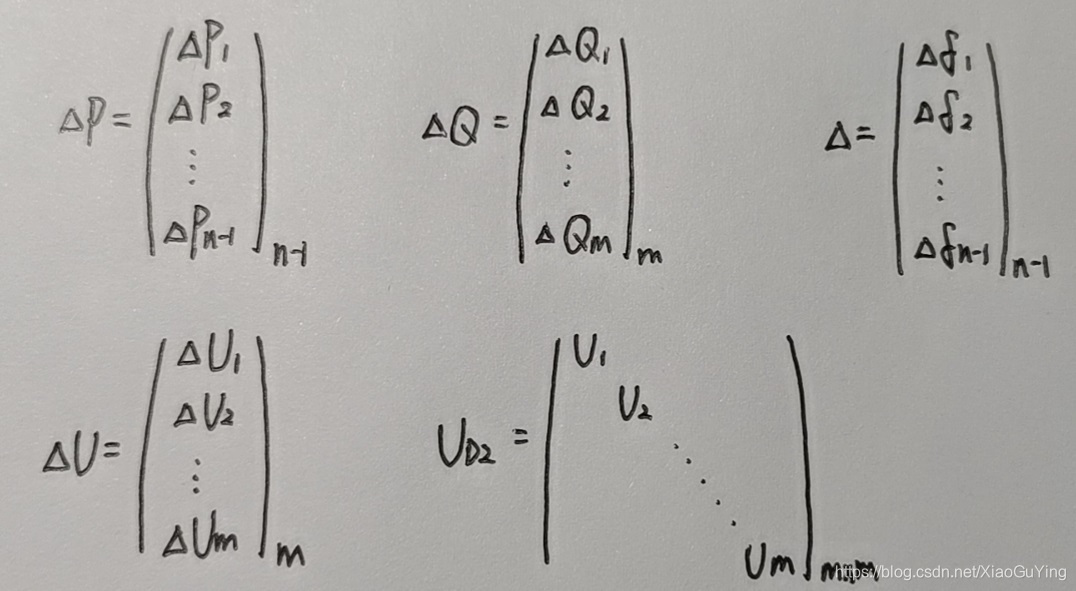 ΔP = [ΔP₁ ΔP₂ ⋮ ΔPₙ₋₁]ₙ₋₁
ΔQ = [ΔQ₁ ΔQ₂ ⋮ ΔQₘ]ₘ
Δ = [Δδ₁ Δδ₂ ⋮ Δδₙ₋₁]ₙ₋₁
ΔU = [ΔU₁ ΔU₂ ⋮ ΔUₘ]ₘ
U_D2 = [U₁ U₂ ⋱ Uₘ]
https://blog.csdn.net/XiaoGuYing